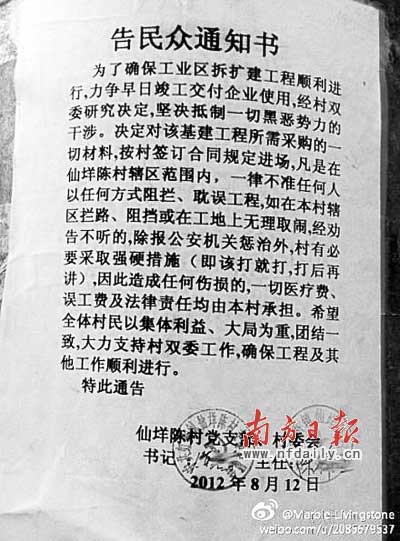 告民众通知书
为了确保工业区拆扩建工程顺利进
行,力争早日竣工交付企业使用,经村双
委研究决定,坚决抵制一切黑恶势力的
干涉。决定对该基建工程所需采购的一
切材料,按村签订合同规定进场,凡是在
仙垟陈村辖区范围内,一律不准任何人
以任何方式阻拦、耽误工程,如在本村辖
区拦路、阻挡或在工地上无理取闹,经劝
告不听的,除报公安机关惩治外,村有必
要采取强硬措施(即该打就打,打后再
讲),因此造成任何伤损的,一切医疗费、
误工费及法律责任均由本村承担。希望
全体村民以集体利益、大局为重,团结一
致,大力支持村双委工作,确保工程及其
他工作顺利进行。
特此通告
仙垟陈村党支部 村委会
南方日报
www.nfdaily.cn
书记 主任:
2012年8月12日
@Marble-Livingstone
weibo.com/u/2085679537